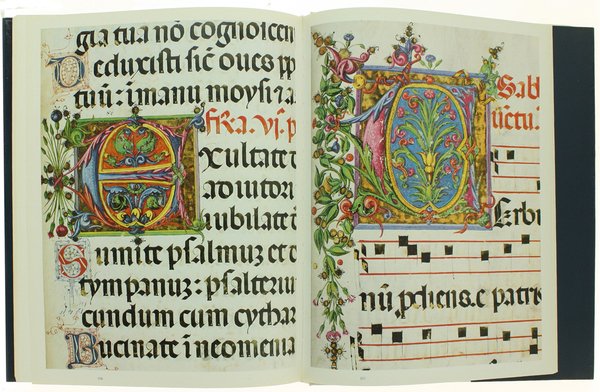 gia tua nō cognoſcen
Deduxisti sic̄ oues pp
tuū: i manu moysi ⁊ a
FRA. VI. p
Exultate d
adiutori
iubilate d
Sumite psalmuz et d
tympanuz: psalterium
cundum cum cythar
Bucinate i neomenia
Sabb
uētu.
Verbu
nū pdiens. e patris